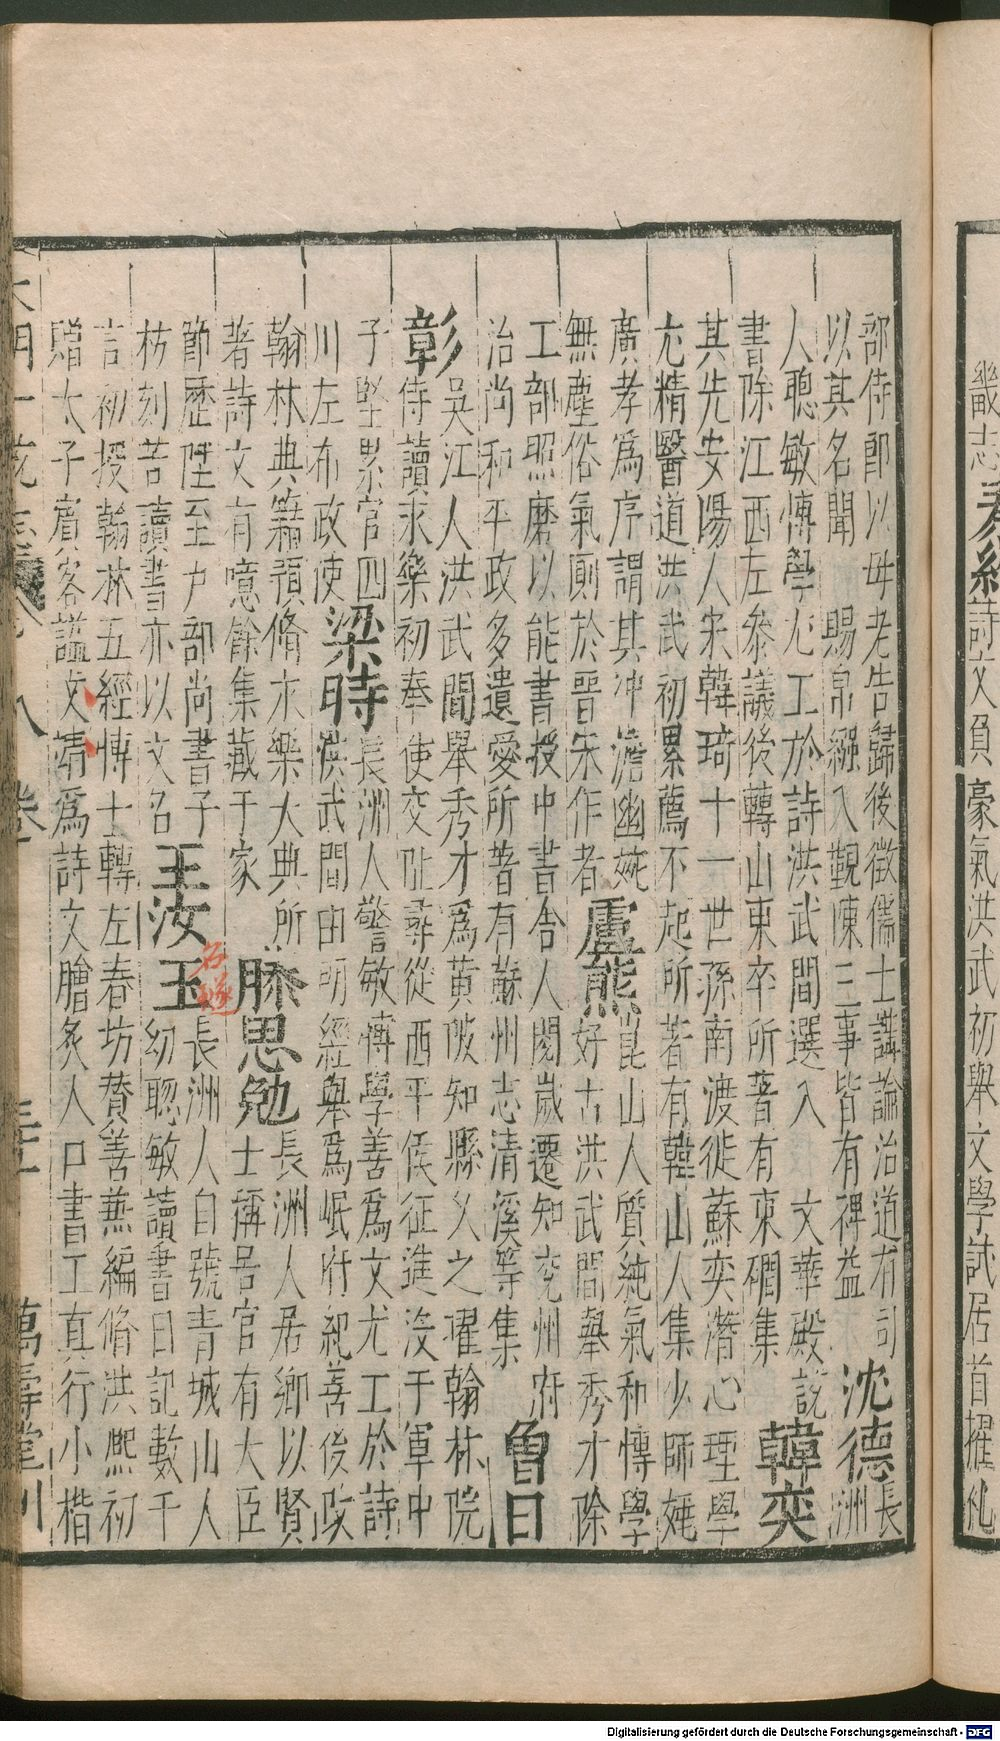 畿志
詩文負
豪氣洪武初舉文學試居首擢
部侍郎以母老告歸後徵儒士講論治道有司
以其名聞 賜帛綑入觀陳三事皆有裨益 沈德
長
洲
人聰敏博學尤工於詩洪武間選入 文華殿說
書除江西左參議後轉山東卒所著有東磵集 韓奕
其先安陽人宋韓琦十一世孫南渡徙蘇奕潛心理學
尤精醫道洪武初累薦不起所著有韓山人集少師姚
廣孝爲序謂其冲澹幽婉 崑山人質純氣和博學
無塵俗氣厠於晉宋作者 盧熊 好古洪武間舉秀才除
工部照磨以能書授中書舍人閱歲遷知兖州府
治尚和平政多遺愛所著有蘇州志清溪等集 魯曰
吳江人洪武間舉秀才爲黄陂知縣乆之擢翰林院
彰 侍讀永樂初奉使交阯尋從西平侯征進沒于軍中
子堅累官四 長洲人警敏博學善爲文尤工於詩
川左布政使 梁時 洪武間由明經舉爲岷府紀善後改
翰林典籍預脩永樂大典所 長洲人居鄉以賢
著詩文有噫餘集藏于家 滕思勉 士稱呂官有大臣
節歷陞至户部尚書子 長洲人自號青城山人
枋刻苦讀書亦以文名 王汝玉 幼聰敏讀書日記數千
名璲
言初授翰林五經博士轉左春坊贊善兼編脩洪熙初
贈太子賔客謚文靖爲詩文膾炙人口書工真行小楷
大明一統志 卷 八 萬壽堂刊
Digitalisierung gefördert durch die Deutsche Forschungsgemeinschaft - DFG